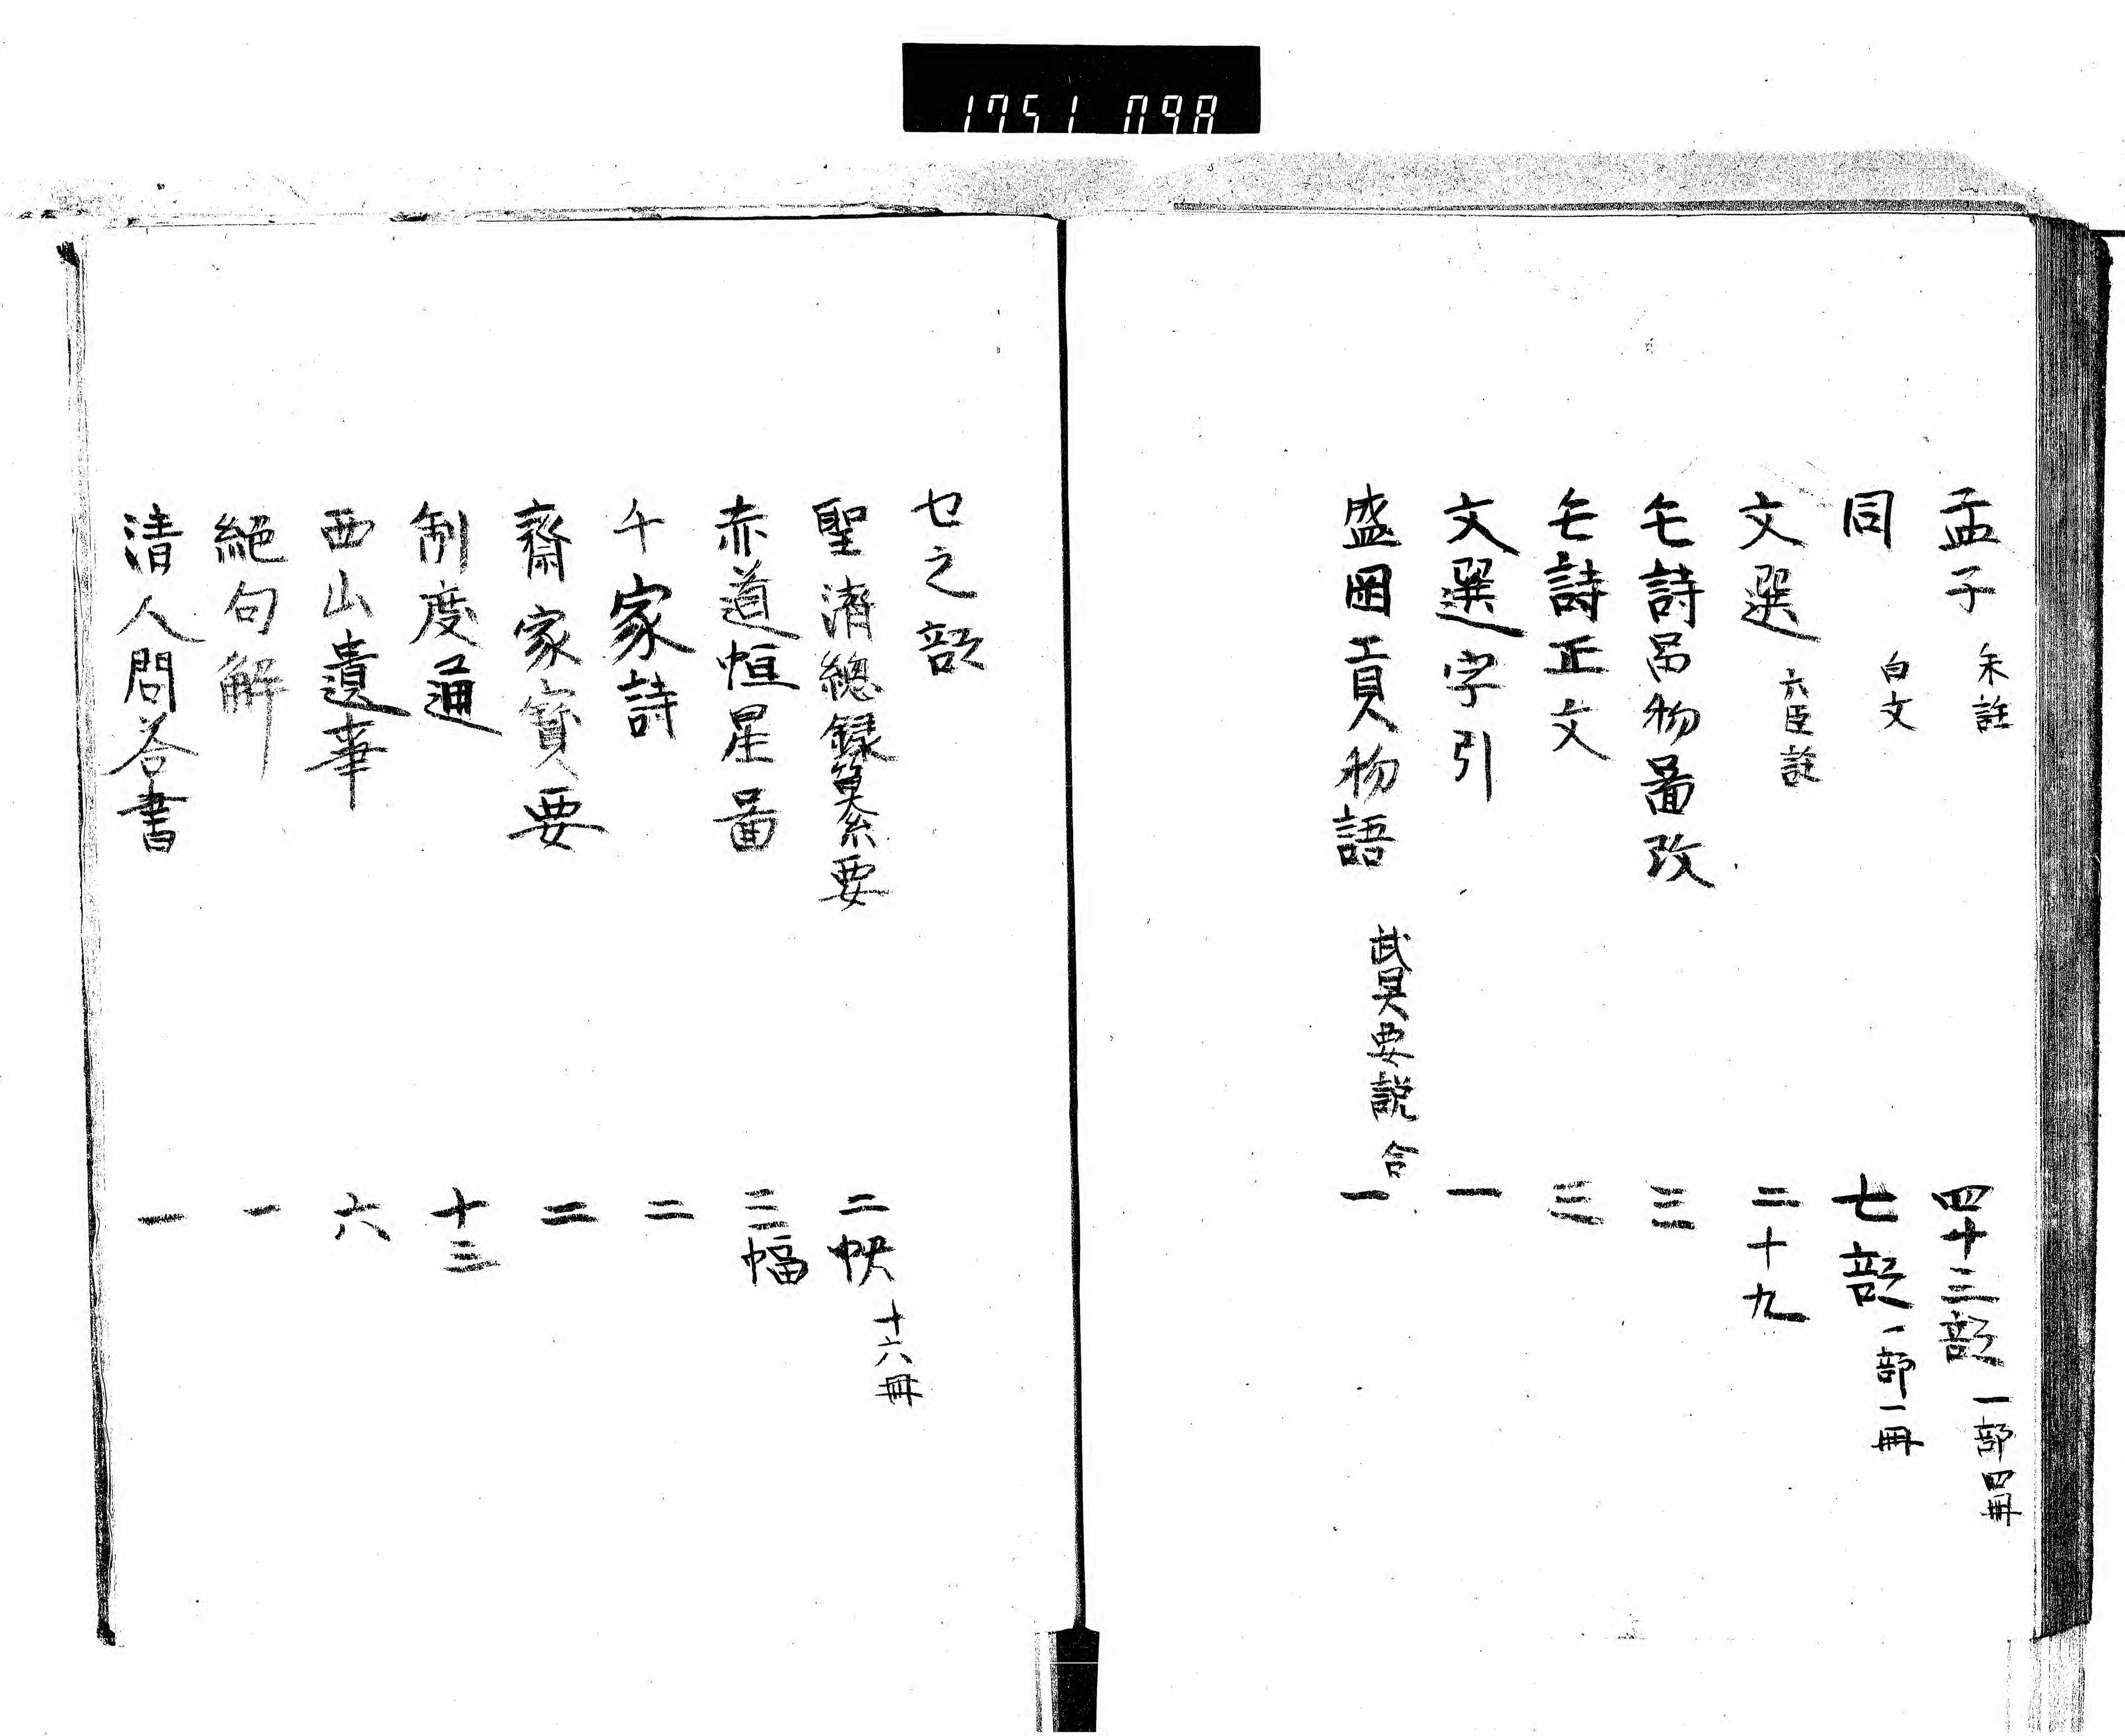 1751 098
孟子 朱註 四十三部 一部四冊
同 白文 七部 一部一冊
文選 六臣註 二十九
毛詩品物圖攷 三
毛詩正文 三
文選字引 一
盛岡貢物語 武具要説合 一
セ之部
聖濟總録纂要 二帙 十六冊
赤道恒星圖 三幅
千家詩 二
齋家寶要 二
制度通 十三
西山遺事 六
絕句解 一
清人問荅書 一